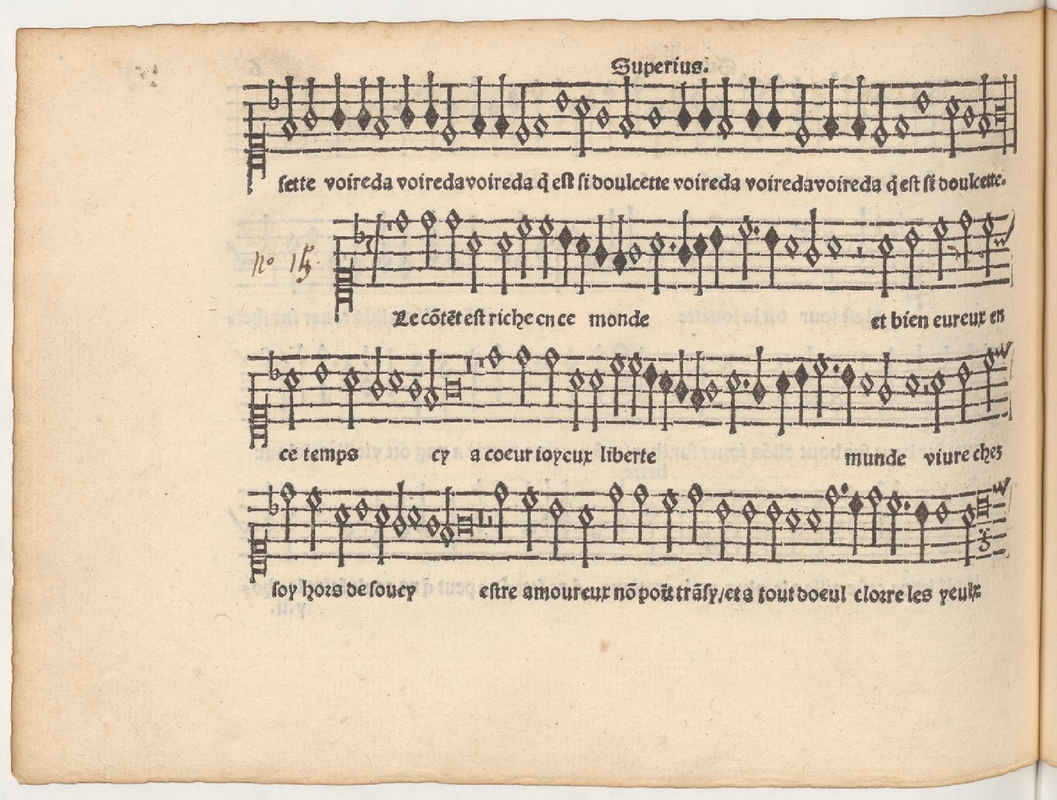 Superius.
sette voireda voireda voireda q̃ est si doulcette voireda voireda voireda q̃ est si doulcette.
nº 15.
Le cõtẽt est riche en ce monde et bien eureux en
ce temps cy a coeur ioyeux liberte munde viure chez
soy hors de soucy estre amoureux nõ poĩt trãsy/et a tout doeul clorre les yeulx